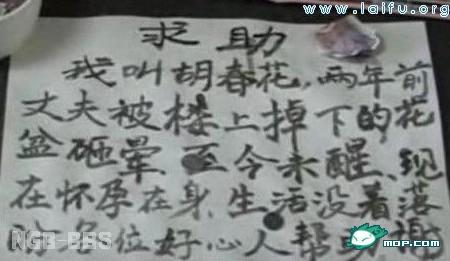 来福岛
www.laifu.org
求助
我叫胡春花,两年前
丈夫被楼上掉下的花
盆砸晕、至今未醒、现
在怀孕在身、生活没着落
位好心人帮助谢
NGB-BBS
mop.com